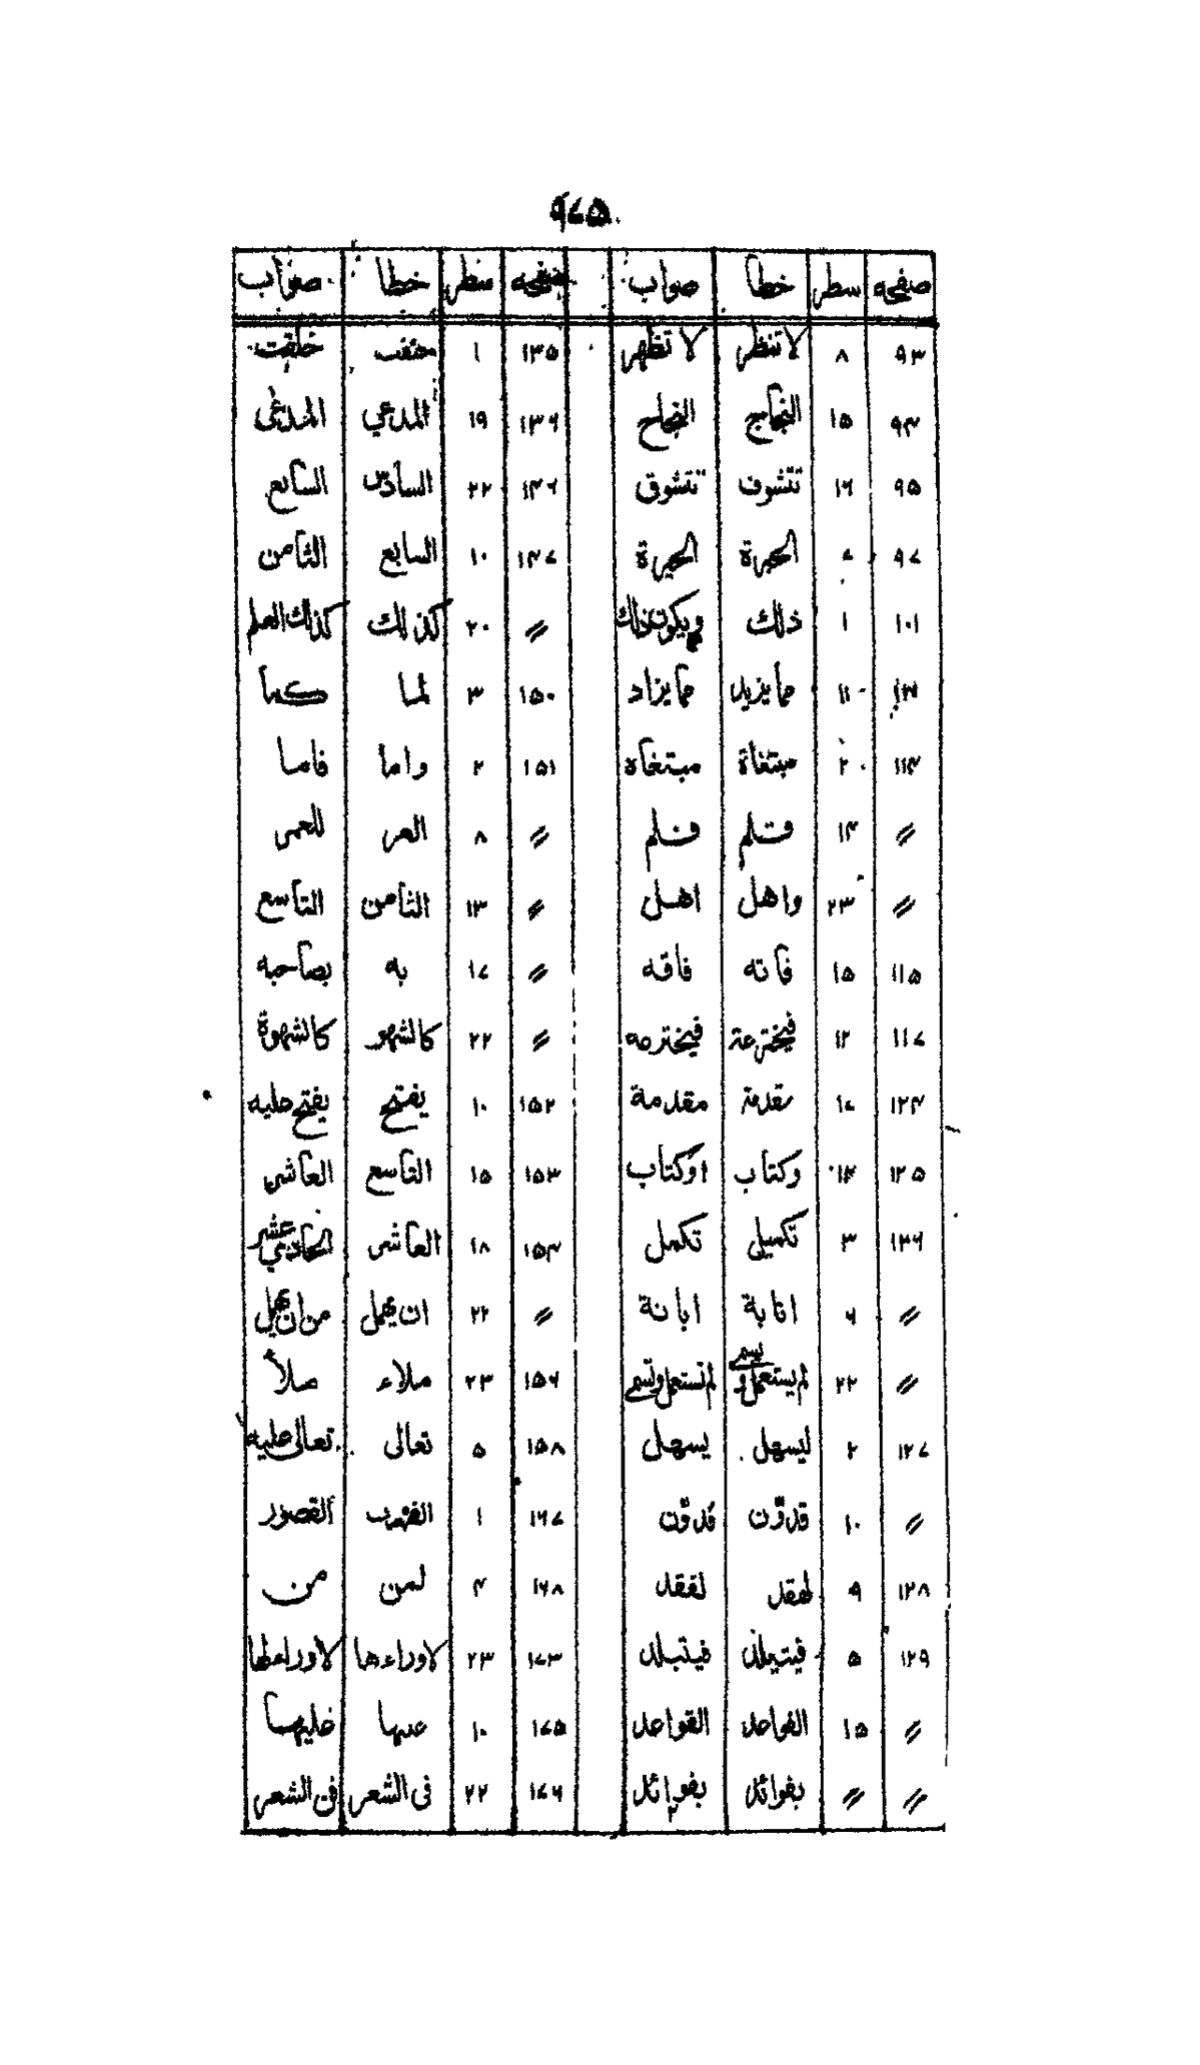 ٩٧٥
صفحه سطر خطا صواب صفحه سطر خطا صواب
٩٣ ٨ لا تنظر لا تظهر ١٣٥ ١ خلقت
٩٤ ١٥ النجاج النجاح ١٣٦ ١٩ المدعي المدعى
٩٥ ١٦ تتشوف تتشوق ١٤٦ ٢٢ السادس السابع
٩٧ ٧ الحيرة الحيرة ١٤٧ ١٠ السابع الثامن
١٠١ ١ ذلك ويكون ذلك 〃 ٢٠ كذلك كذلك العلم
١١ مما يزيد مما يزاد ١٥٠ ٣ لما كما
١١٤ ٢٠ مبتغاة مبتغاه ١٥١ ٢ واما فاما
〃 ١٤ قلم فلم 〃 ٨ العمر للعمر
〃 ٢٣ واهل اهلى 〃 ١٣ الثامن التاسع
١١٥ ١٥ فاته فاقه 〃 ١٧ به بصاحبه
١١٧ ١٢ فيخترعة فيخترمه 〃 ٢٢ كالشهو كالشهوة
١٢٤ ١٧ مقدمة ١٥٢ ١٠ يفتح يفتح عليه
١٢٥ ١٤ وكتاب اوكتاب ١٥٣ ١٥ التاسع العاشر
١٣٦ ٣ تكميل تكمل ١٥٤ ١٨ العاشر الحادي عشر
〃 ٦ اتابة ابانة 〃 ٢٢ ان يحمل من ان يحمل
〃 ٢٢ لم يستعمل ويسمى لم تستعمل وتسمى ١٥٦ ٢٣ ملاء ملأ
١٢٧ ٢ ليسهل يسهل ١٥٨ ٥ تعالى تعالى عليه
〃 ١٠ قدوّن فدوّن ١٦٧ ١ القصور
١٢٨ ٩ لعقد لفقد ١٦٨ ٤ لمن من
١٢٩ ٥ فيتبلد ١٧٣ ٢٣ لا وراءها لا وراء لها
〃 ١٥ الفواعد القواعد ١٧٥ ١٠ عنها خليهما
〃 〃 بفوائد بفوائد ١٧٦ ٢٢ فى الشعر فن الشعر